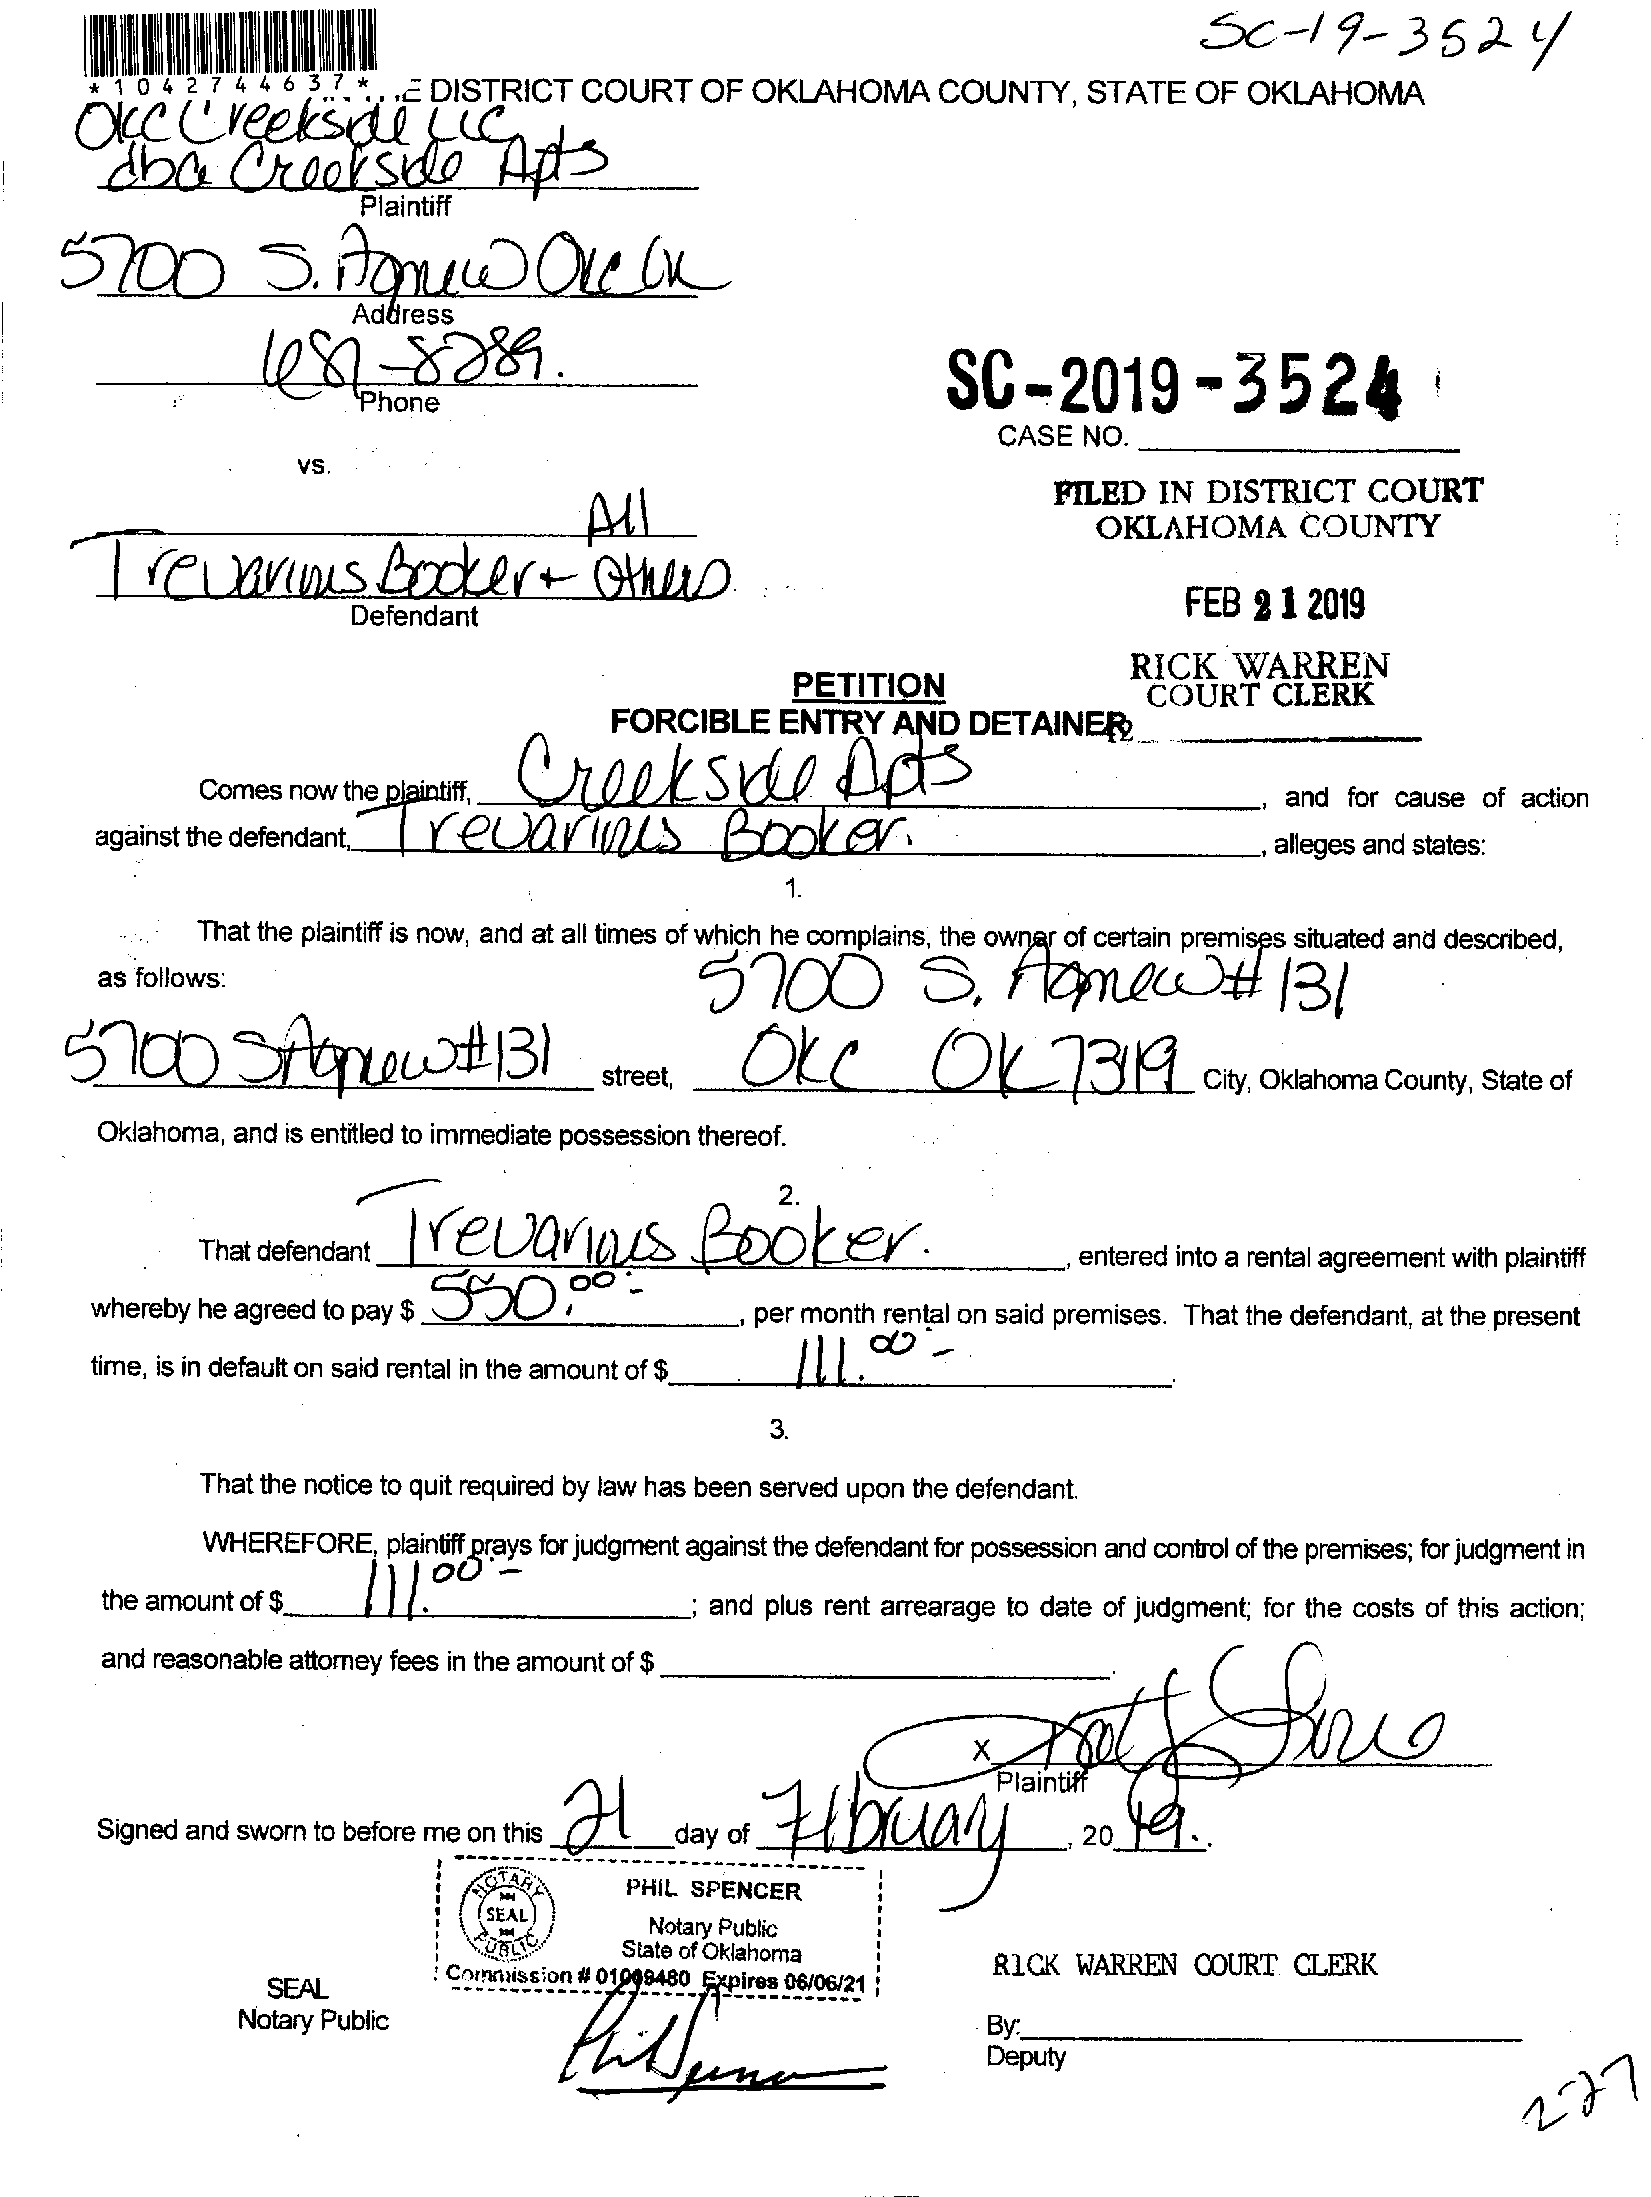 SC-19-3524
*1042744637*
E DISTRICT COURT OF OKLAHOMA COUNTY, STATE OF OKLAHOMA
OKC Creekside LLC
dba Creekside Apts
Plaintiff
5700 S. Agnew OKC OK
Address
681-8289.
Phone
SC-2019-3524
CASE NO.
vs.
FILED IN DISTRICT COURT
OKLAHOMA COUNTY
All
Trevarious Booker + Others
Defendant
FEB 21 2019
RICK WARREN
COURT CLERK
PETITION
FORCIBLE ENTRY AND DETAINER
Comes now the plaintiff, Creekside Apts, and for cause of action
against the defendant, Trevarious Booker., alleges and states:
1.
That the plaintiff is now, and at all times of which he complains, the owner of certain premises situated and described,
as follows: 5700 S. Agnew #131
5700 S Agnew #131 street, OKC OK 73119 City, Oklahoma County, State of
Oklahoma, and is entitled to immediate possession thereof.
2.
That defendant Trevarious Booker., entered into a rental agreement with plaintiff
whereby he agreed to pay $ 550.00-, per month rental on said premises. That the defendant, at the present
time, is in default on said rental in the amount of $ 111.00-.
3.
That the notice to quit required by law has been served upon the defendant.
WHEREFORE, plaintiff prays for judgment against the defendant for possession and control of the premises; for judgment in
the amount of $ 111.00-; and plus rent arrearage to date of judgment; for the costs of this action;
and reasonable attorney fees in the amount of $
X
Plaintiff
Signed and sworn to before me on this 21 day of February, 2019.
NOTARY PUBLIC
SEAL
PHIL SPENCER
Notary Public
State of Oklahoma
Commission # 01009480 Expires 06/06/21
SEAL
Notary Public
Phil Spencer
RICK WARREN COURT CLERK
By:
Deputy
2-27